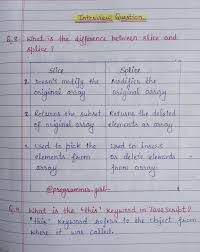 Interview Question
Q.3 What is the difference between slice and
splice ?
Slice
Splice
1. Doesn't modify the
original array
Modifies the
original array
2. Returns the subset
of original array
Returns the deleted
elements as array
3. Used to pick the
elements from
array
Used to insert
or delete elements
from array
@programmer_girl
Q.4 What is the "this" keyword in JavaScript ?
"this" keyword refers to the object from
where it was called.